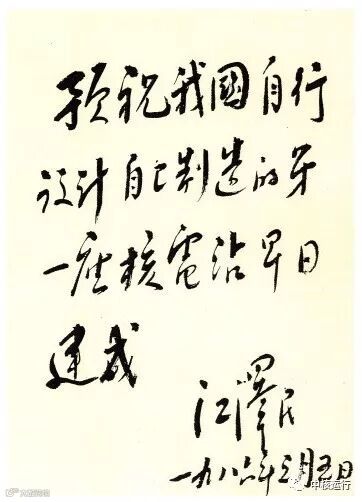 预祝我國自行
设计自己制造的第
一座核電站早日
建成
江澤民
一九八六年三月五日
中核运行